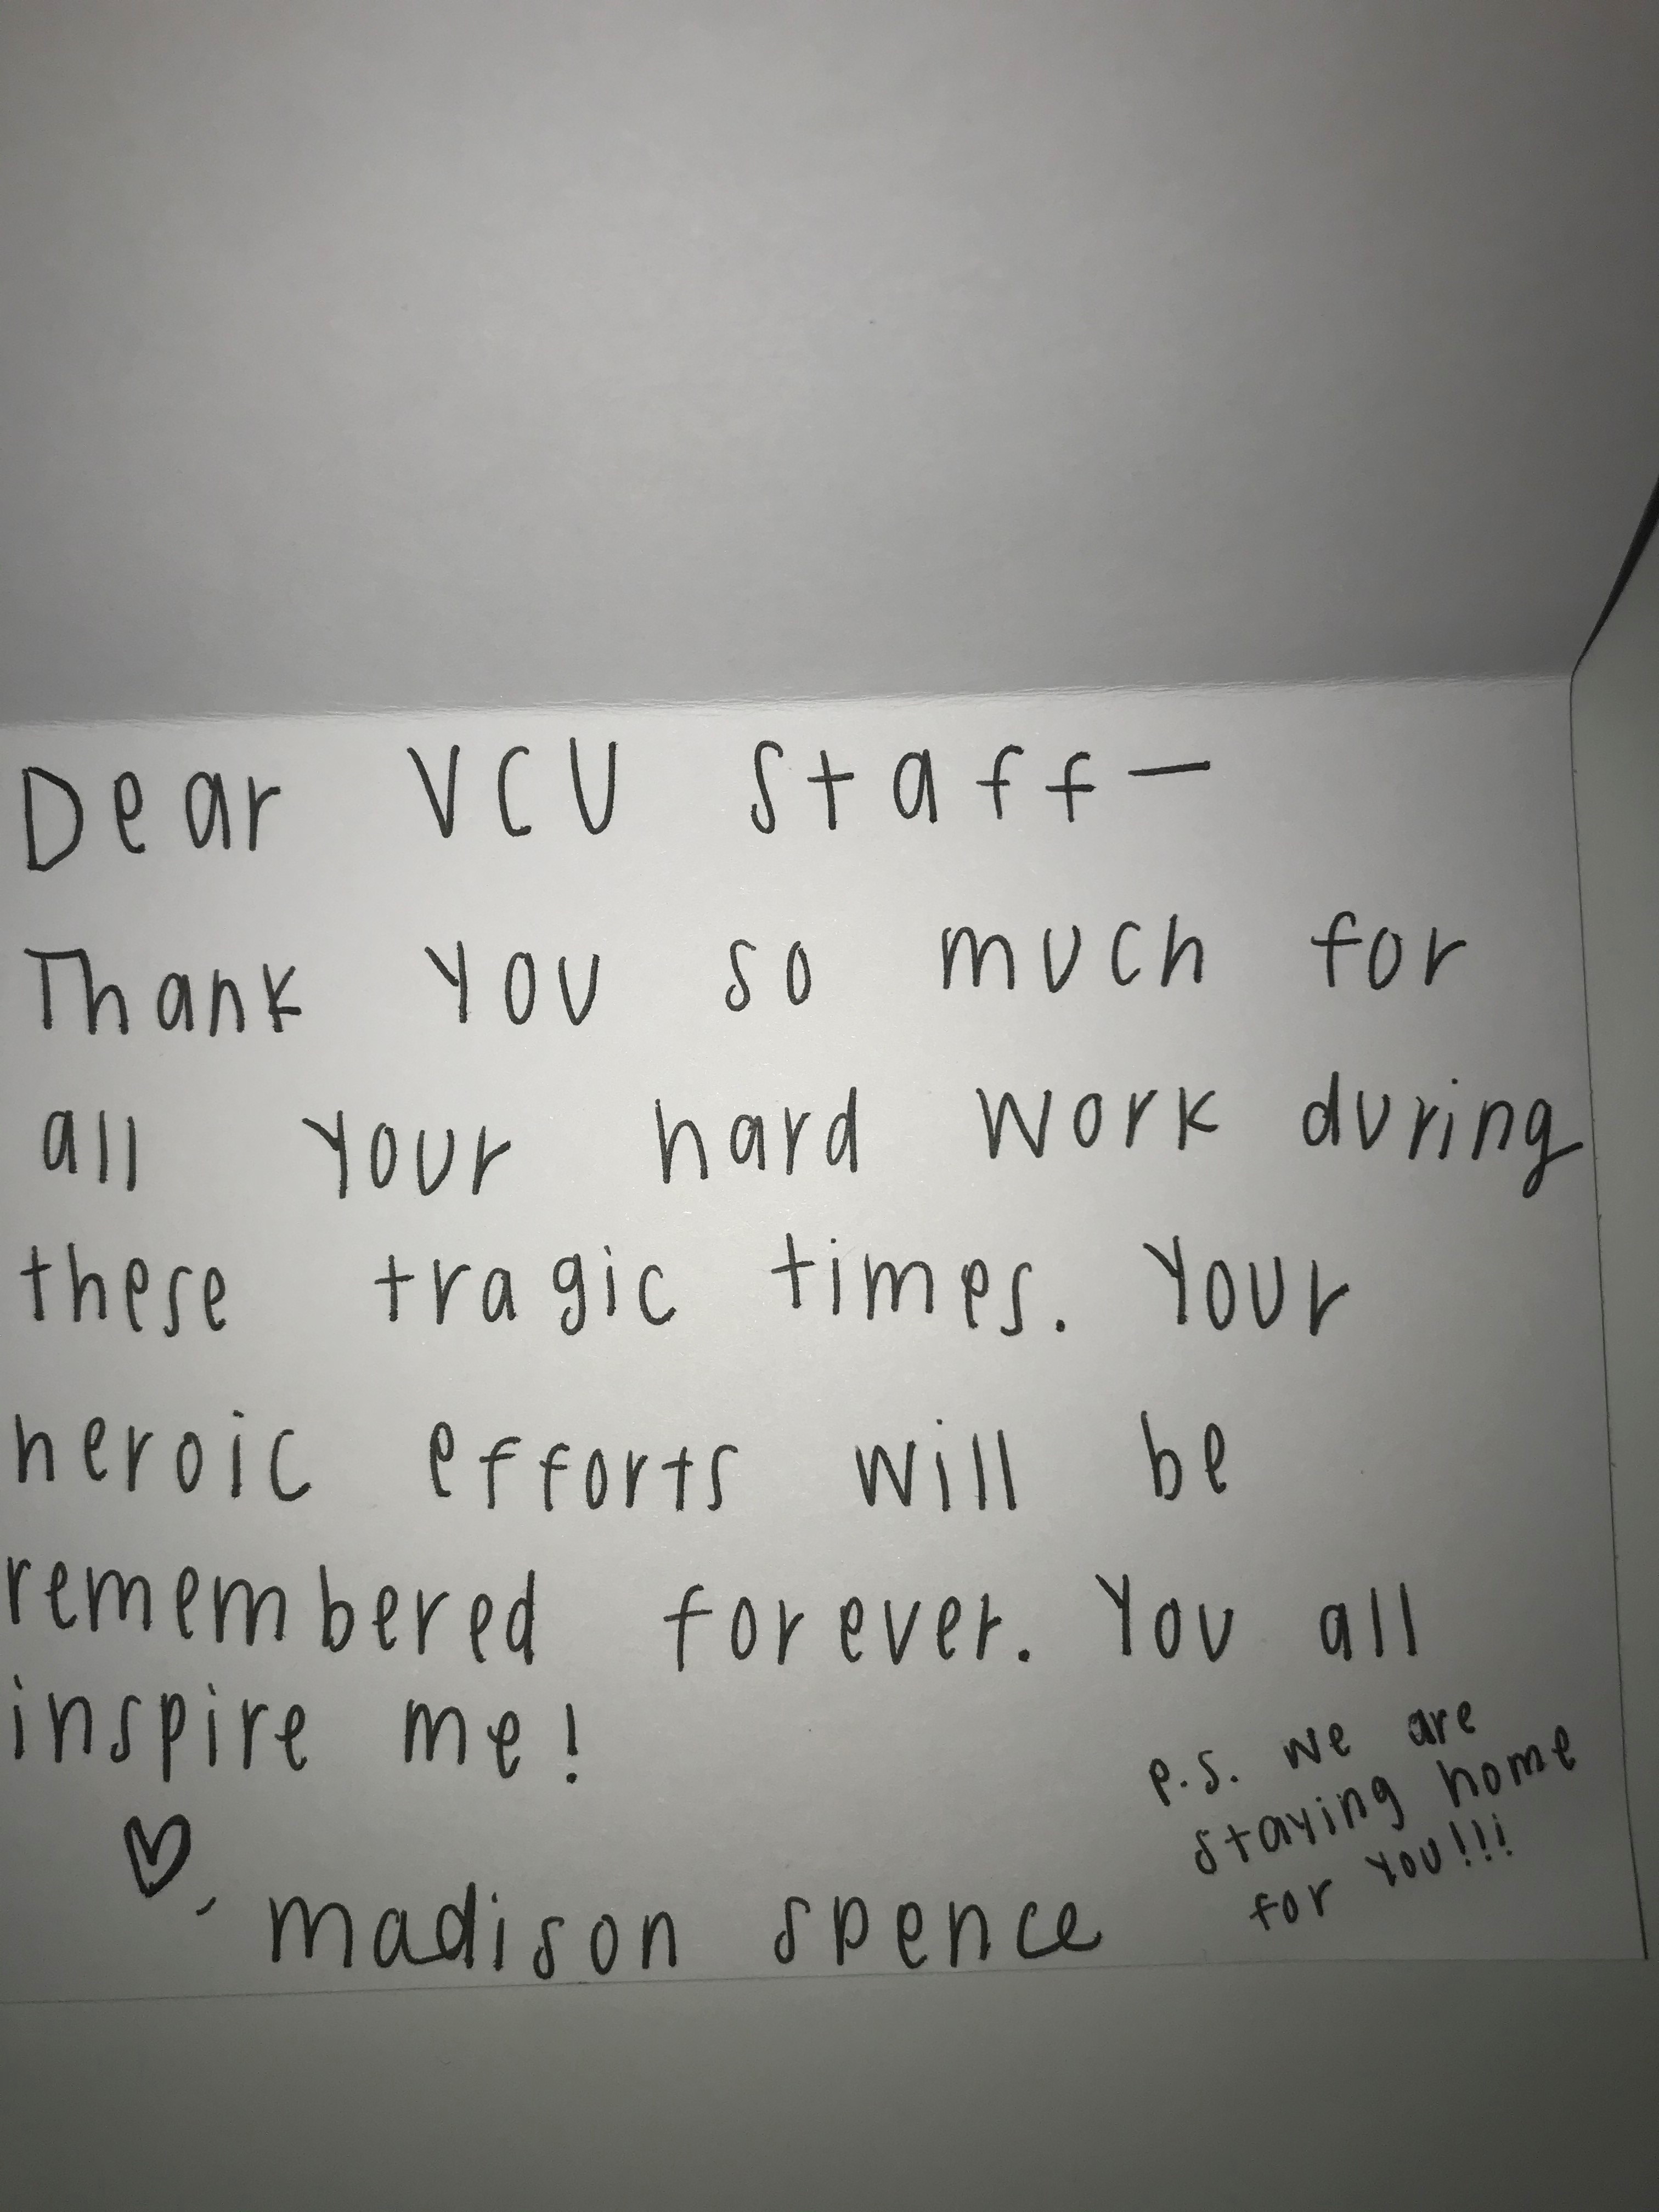 Dear VCU Staff —
Thank you so much for
all your hard work during
these tragic times. Your
heroic efforts will be
remembered forever. You all
inspire me!
♡, madison spence
p.s. we are
staying home
for you!!!